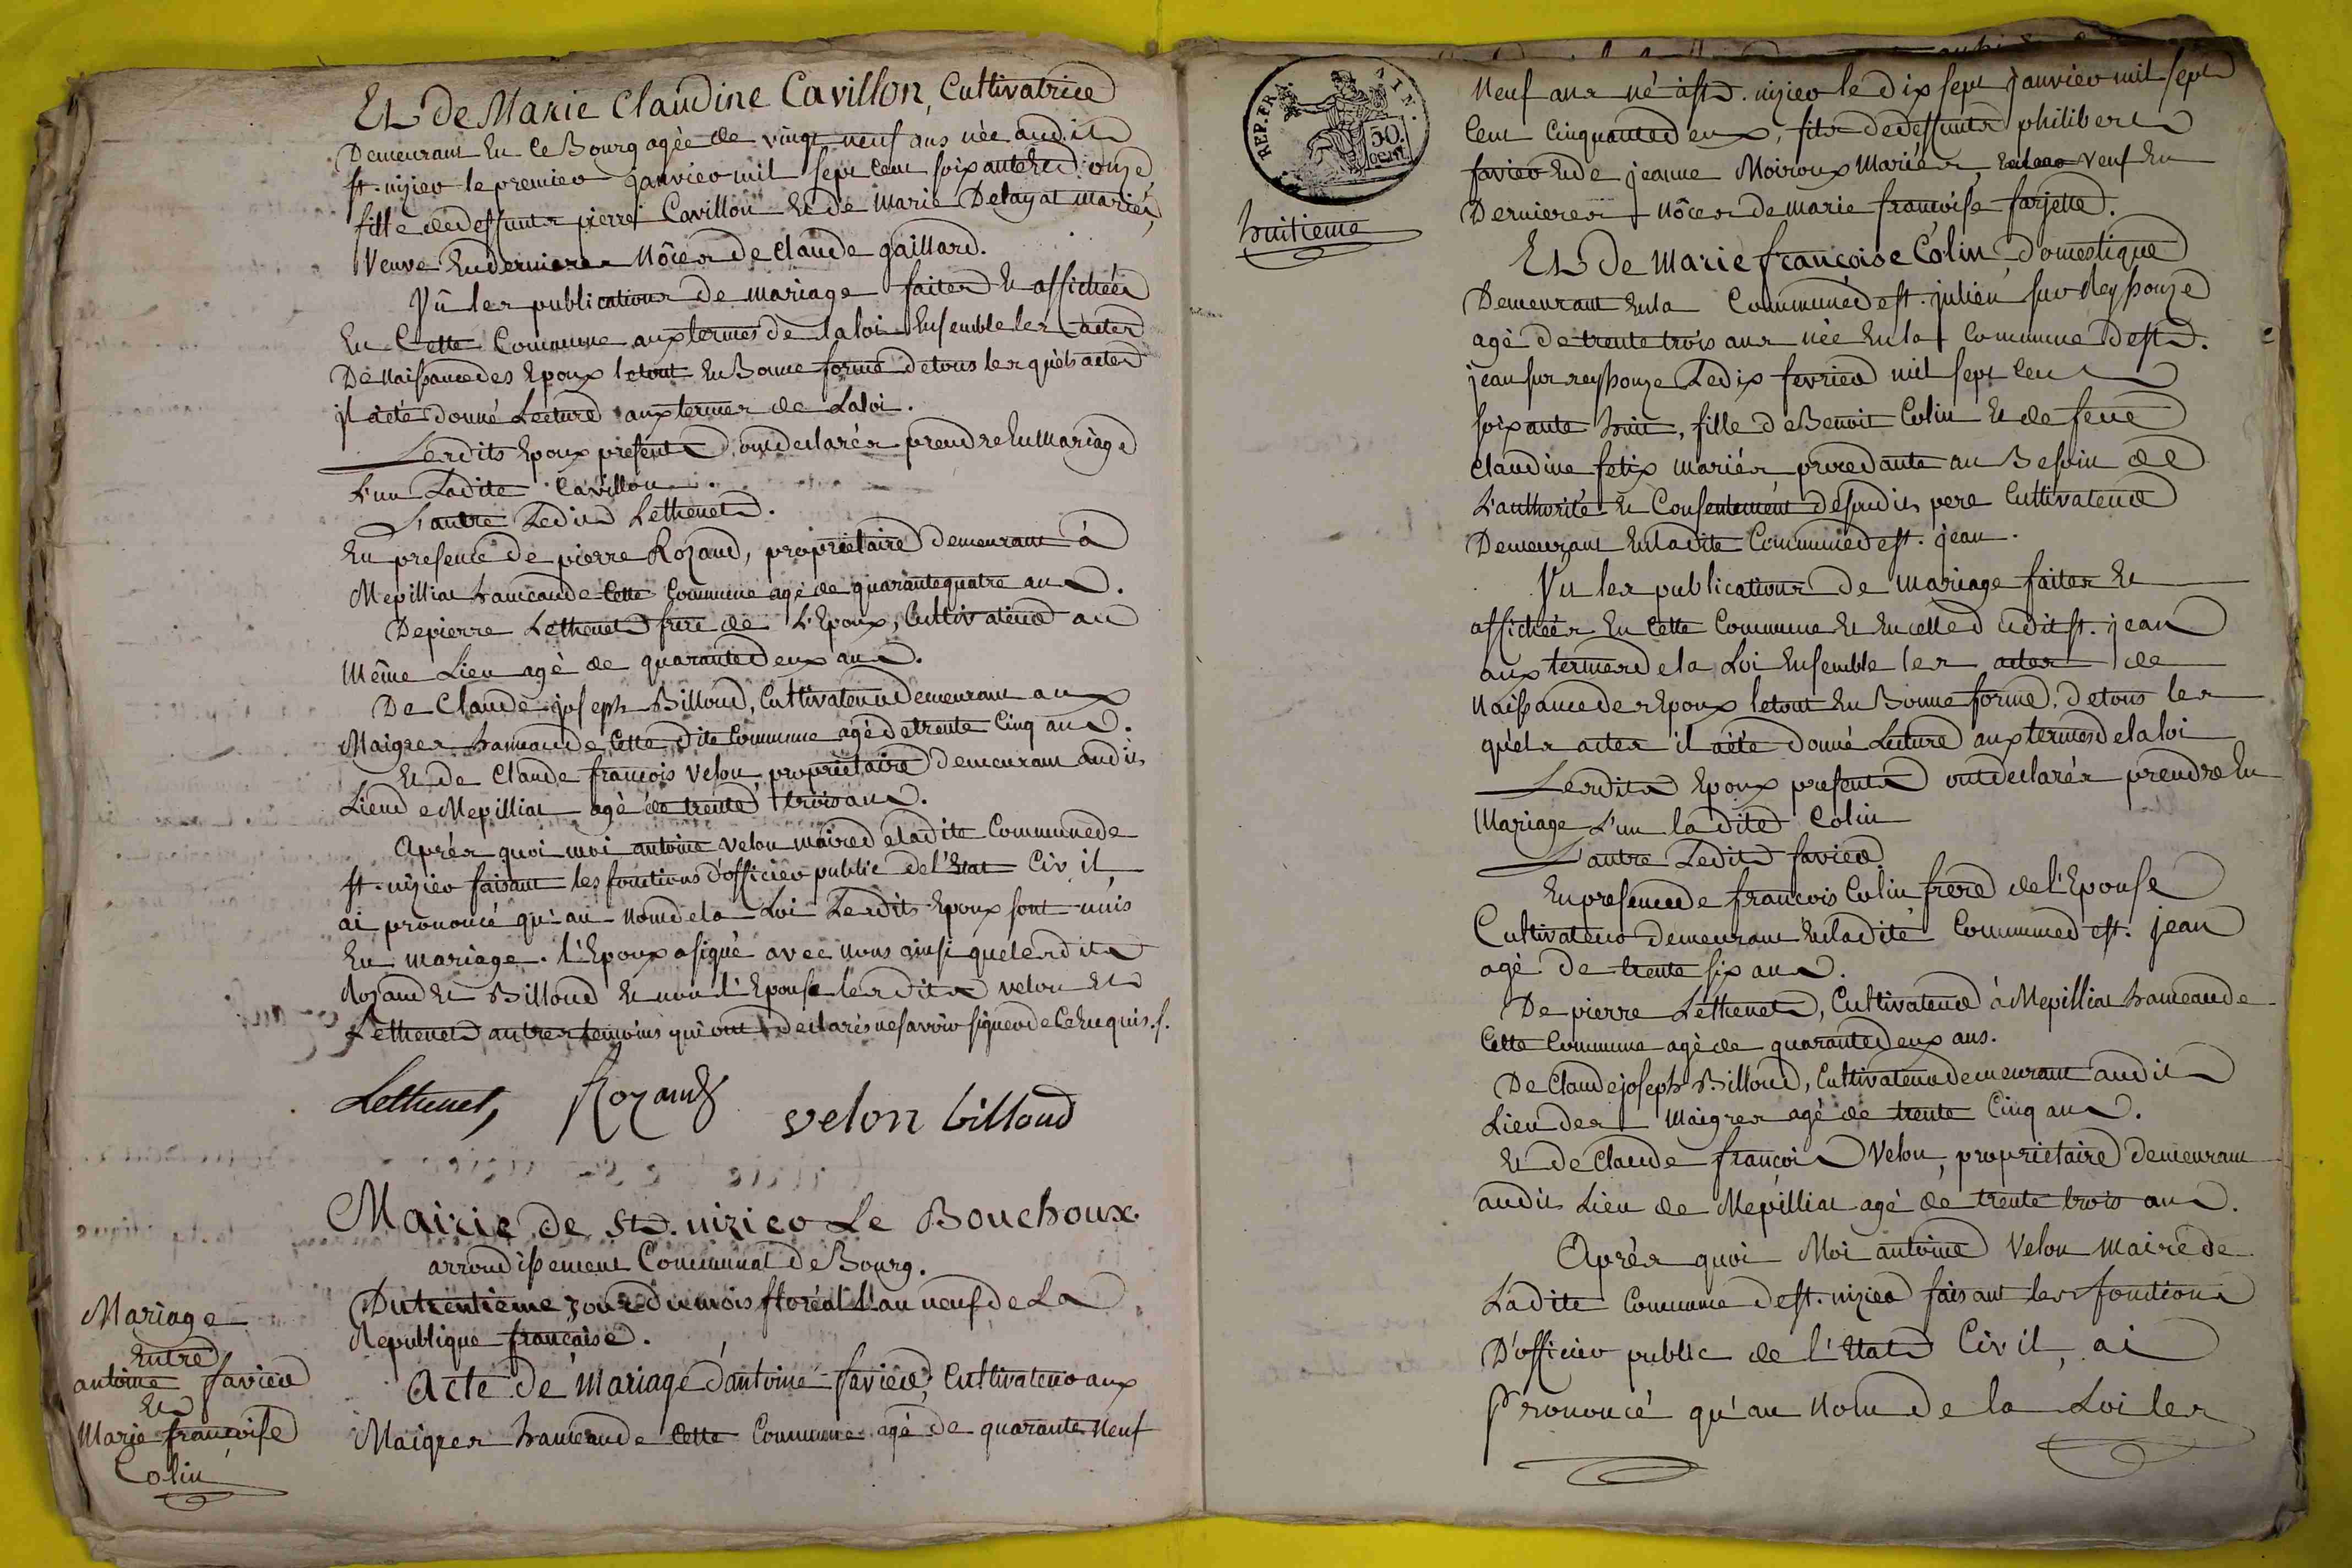 Et de Marie Claudine Cavillon, Cultivatrice
Demeurant En Ce Bourg agée de vingt neuf ans née audit
st. nizier le premier janvier mil sept Cent soixante et onze,
fille de deffunts pierre Cavillon Et de Marie Delayat mariés,
Veuve En dernieres Nôces de Claude gaillard.
Vû les publications de mariage faites Et affichées
En Cette Commune aux termes de la loi Ensemble les actes
De Naissance des Epoux le tout En Bonne forme de tous les quels actes
il a été donné Lecture aux termes de La loi.
Lesdits Epoux presents ont declarés prendre En Mariage
L'un Ladite Cavillon.
L'autre Ledit Lethenet.
En presence de pierre Rozand, proprietaire demeurant à
Mepilliat hameau de Cette Commune agé de quarante quatre ans.
De pierre Lethenet frere de L'Epoux, Cultivateur au
Même Lieu agé de quarante deux ans.
De Claude joseph Billoud, Cultivateur demeurant aux
Maigres hameau de Cette dite Commune agé de trente Cinq ans.
Et de Claude françois Velon proprietaire demeurant audit
Lieu de Mepilliat agé de trente trois ans.
Aprés quoi moi antoine velon maire de ladite Commune de
st. nizier faisant les fonctions d'officier public de l'Etat Civil,
ai prononcé qu'au nom de la Loi Lesdits Epoux sont unis
En mariage. l'Epoux a signé avec nous ainsi que lesdits
Rozand Et Billoud Et non l'Epouse lesdits velon Et
Lethenet autres temoins qui ont declarés ne savoir signer de Ce Enquis. s.
Lethenet, Rozand velon billoud
Mairie de St. nizier Le Bouchoux.
arrondissement Communal de Bourg.
Du trentieme jour du mois floréal l'an neuf de La
Republique française.
Mariage
Entre
antoine favier
Et
Marie francoise
Colin
Acte de Mariage d'antoine favier, Cultivateur aux
Maigres hameau de Cette Commune agé de quarante Neuf
REP. FRA
50.
cent.
huitieme
Neuf ans né à st. nizier le dix sept janvier mil sept
Cent Cinquante deux, fils de deffunts philibert
favier Et de jeanne Moiroux Mariés, veuf En
Dernieres Nôces de Marie francoise farjette.
Et De Marie francoise Colin, Domestique
Demeurant En la Commune de st. julien sur Reyssouze
agé de trente trois ans née En la Commune de st.
jean sur reyssouze Le dix fevrier mil sept Cent
soixante huit, fille de Benoit Colin Et de feue
Claudine felix mariés procedante au Besoin de
L'authorité Et Consentement desondit pere Cultivateur
Demeurant En ladite Commune de st. jean.
Vu les publications de mariage faites Et
affichées En Cette Commune Et En celle dudit st. jean
aux termes de la Loi Ensemble les actes de
Naissance des Epoux le tout En Bonne forme, de tous les
quels actes il a été donné Lecture aux termes de la loi
Lesdits Epoux presents ont declarés prendre En
Mariage L'un ladite Colin
L'autre Ledit favier
En presence de francois Colin frere de l'Epouse
Cultivateur demeurant En ladite Commune de st. jean
agé de trente six ans.
De pierre Lethenet, Cultivateur à Mepilliat hameau de
Cette Commune agé de quarante deux ans.
De Claude joseph Billoud, Cultivateur demeurant audit
Lieu des Maigres agé de trente Cinq ans.
Et de Claude françois Velon, proprietaire demeurant
audit Lieu de Mepilliat agé de trente trois ans.
Aprés quoi Moi antoine Velon Maire de
Ladite Commune de st. nizier faisant les fonctions
D'officier public de l'Etat Civil, ai
Prononcé qu'au Nom de la Loi les